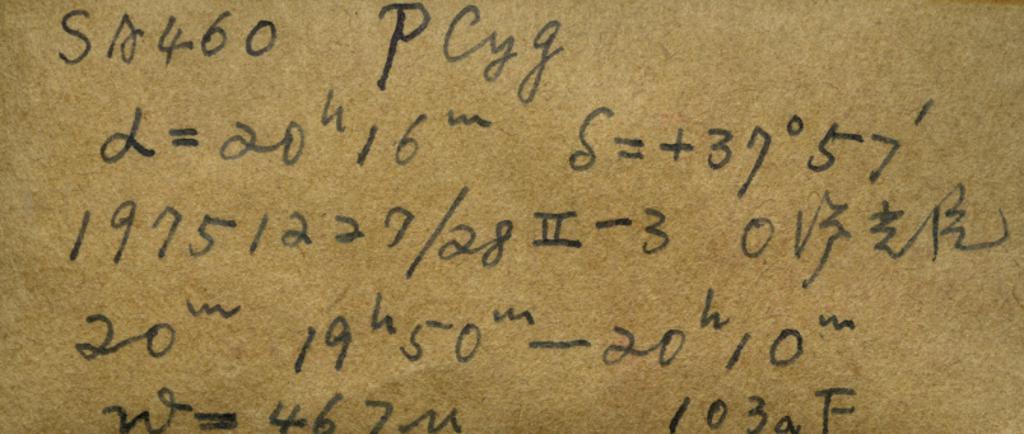 SA460 P Cyg
α = 20ʰ16ᵐ δ = +37°57′
19751227/28 II-3
20ᵐ 19ʰ50ᵐ — 20ʰ10ᵐ
w = 467μ 103aF